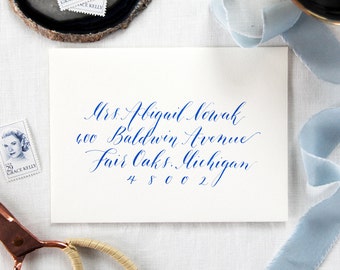 GRACE KELLY
GRACE KELLY
Mrs. Abigail Nowak
600 Baldwin Avenue
Fair Oaks, Michigan
48002